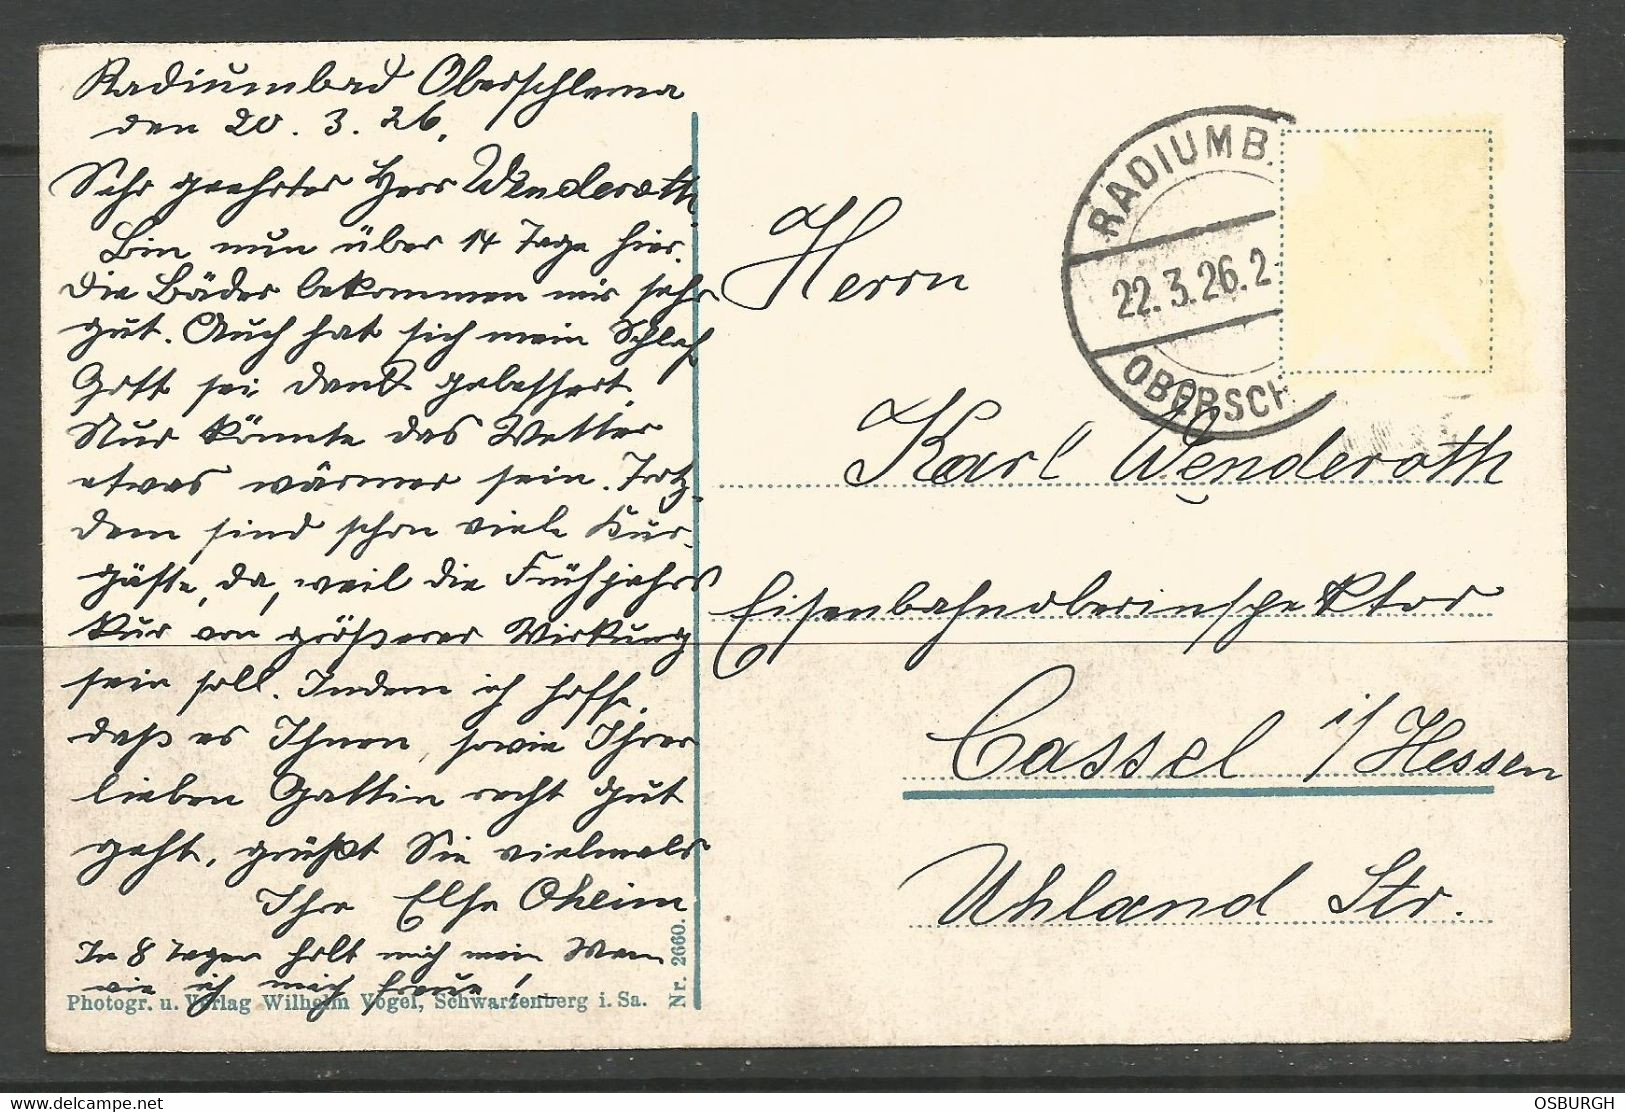 Radiumbad Oberschlema
den 20. 3. 26.
Sehr geehrter Herr Wenderoth.
Bin nun über 14 Tage hier.
Die Bäder bekommen mir sehr
gut. Auch hat sich mein Schlaf
Gott sei Dank gebessert.
Nur könnte das Wetter
etwas wärmer sein. Trotz-
dem sind schon viele Kur-
gäste, da, weil die Frühjahrs
kur von größerer Wirkung
sein soll. Indem ich hoffe,
daß es Ihnen, sowie Ihrer
lieben Gattin recht gut
geht, grüßt Sie vielmals
Ihre Else Oheim
In 8 Tagen holt mich mein Mann
wie ich mich freue! –
Photogr. u. Verlag Wilhelm Vogel, Schwarzenberg i. Sa.
Nr. 2660.
RADIUMB.
22.3.26.2
OBERSCH
Herrn
Karl Wenderoth
Eisenbahnoberinspektor
Cassel i/Hessen
Uhland Str.
delcampe.net
OSBURGH